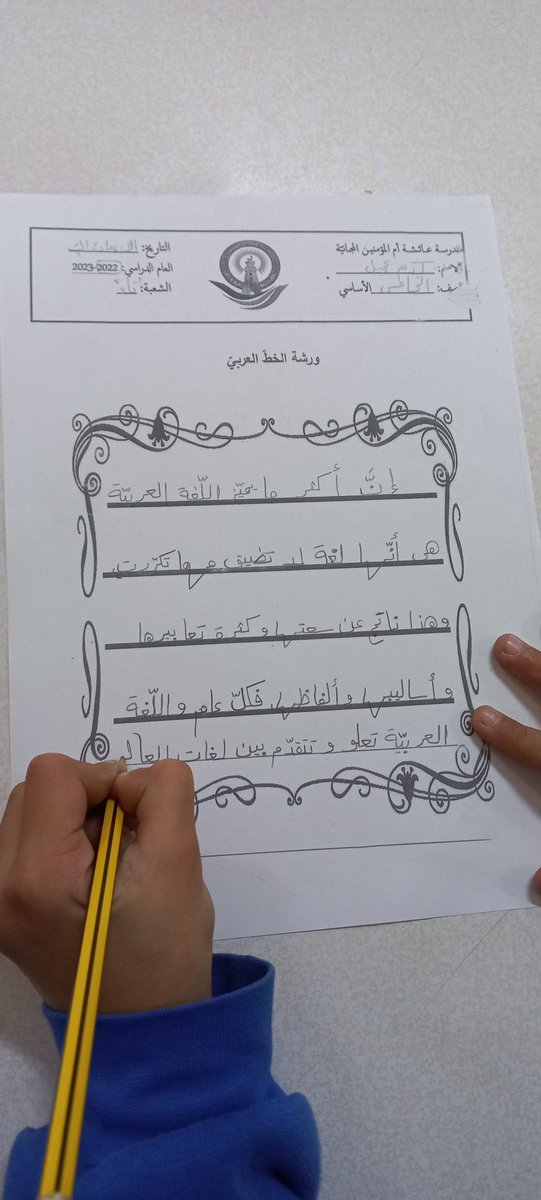 مدرسة عائشة أم المؤمنين المجانيّة
التاريخ: الأربعاء
الاسم: آدم
العام الدراسي: 2022-2023
الصف: الخامس الأساسي
الشعبة:
ورشة الخطّ العربيّ
إنّ أكثر ما يميّز اللّغة العربيّة
هي أنّها لغة لا تضيق مهما تكرّرت،
وهذا ناتج عن سعتها وكثرة تعابيرها
وأساليبها وألفاظها. فكلّ عام واللّغة
العربيّة تعلو وتتقدّم بين لغات العالم